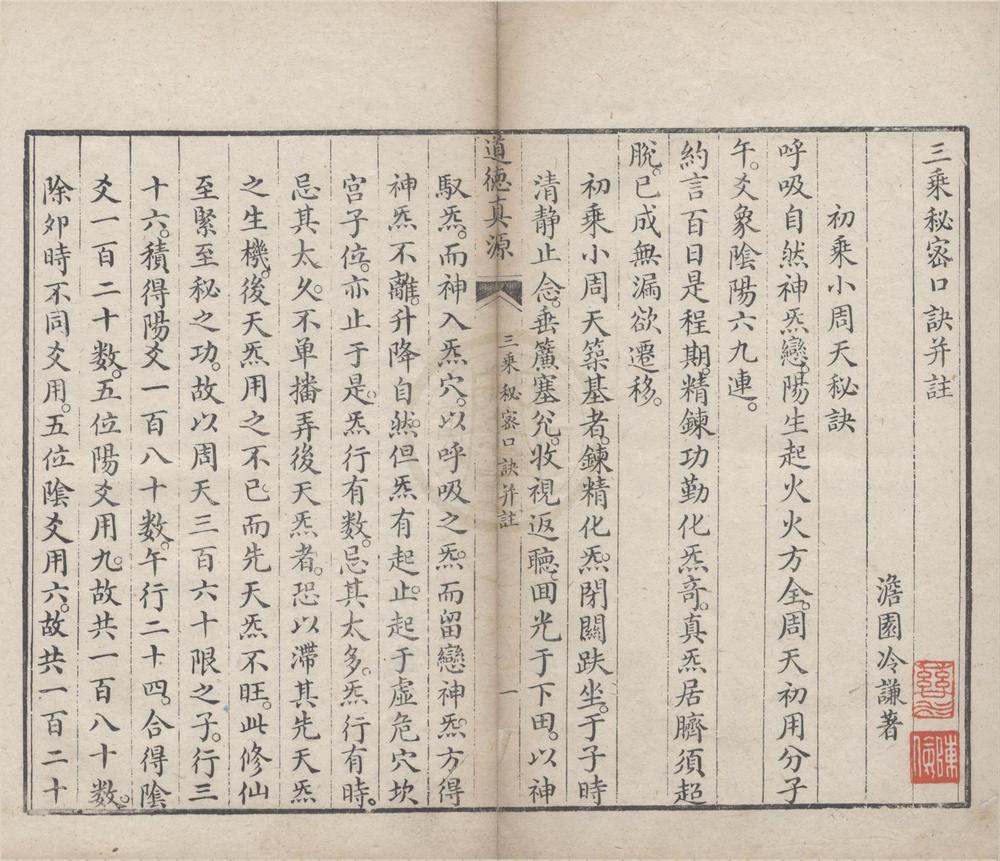 三乘秘密口訣并註
澹園冷謙著
初乘小周天秘訣
呼吸自然神炁戀。陽生起火火方全。周天初用分子
午。爻象陰陽六九連。
約言百日是程期。精鍊功勤化炁竒。真炁居臍須超
脫。已成無漏欲遷移。
初乘小周天築基者。鍊精化炁。閉關趺坐。于子時
清静止念。垂簾塞兊。收視返聽。囬光于下田。以神
道德真源
三乘秘密口訣并註
一
馭炁。而神入炁穴。以呼吸之炁。而留戀神炁。方得
神炁不離。升降自然。但炁有起止。起于虛危穴坎
宫子位。亦止于是。炁行有数。忌其太多。炁行有時。
忌其太久。不单播弄後天炁者。恐以滯其先天炁
之生機。後天炁用之不已。而先天炁不旺。此修仙
至緊至秘之功。故以周天三百六十限之子。行三
十六。積得陽爻一百八十数。午行二十四。合得陰
爻一百二十数。五位陽爻用九。故共一百八十数。
除夘時不同爻用。五位陰爻用六。故共一百二十